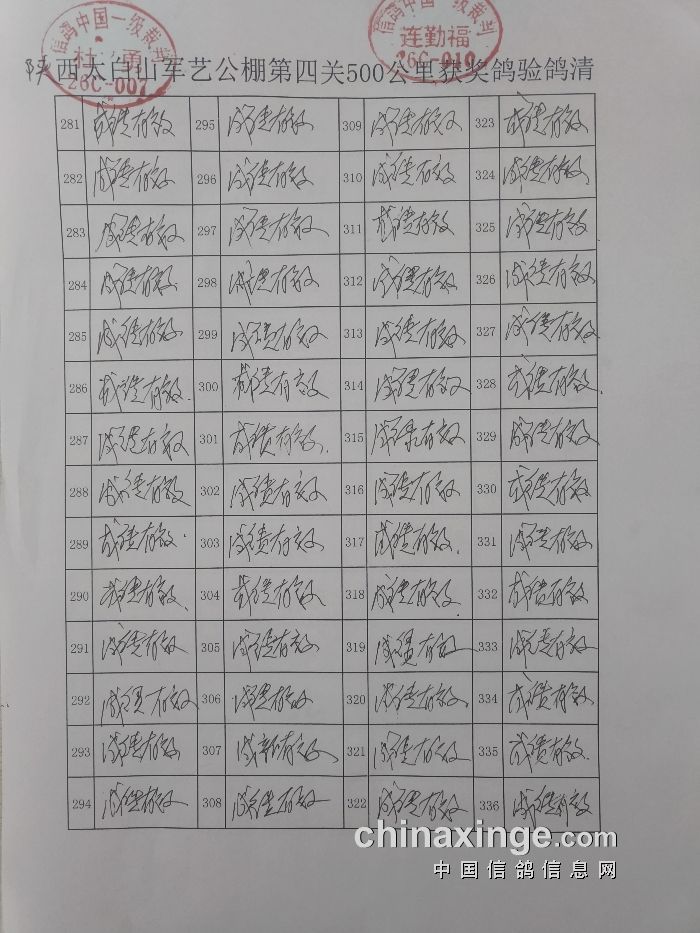 信鸽中国一级裁判
杜勇
26C-007
信鸽中国一级裁判
连勤福
26C-010
陕西太白山军艺公棚第四关500公里获奖鸽验鸽清
281 成绩有效 295 成绩有效 309 成绩有效 323 成绩有效
282 成绩有效 296 成绩有效 310 成绩有效 324 成绩有效
283 成绩有效 297 成绩有效 311 成绩有效 325 成绩有效
284 成绩有效 298 成绩有效 312 成绩有效 326 成绩有效
285 成绩有效 299 成绩有效 313 成绩有效 327 成绩有效
286 成绩有效 300 成绩有效 314 成绩有效 328 成绩有效
287 成绩有效 301 成绩有效 315 成绩有效 329 成绩有效
288 成绩有效 302 成绩有效 316 成绩有效 330 成绩有效
289 成绩有效 303 成绩有效 317 成绩有效 331 成绩有效
290 成绩有效 304 成绩有效 318 成绩有效 332 成绩有效
291 成绩有效 305 成绩有效 319 成绩有效 333 成绩有效
292 成绩有效 306 成绩有效 320 成绩有效 334 成绩有效
293 成绩有效 307 成绩有效 321 成绩有效 335 成绩有效
294 成绩有效 308 成绩有效 322 成绩有效 336 成绩有效
chinaxinge.com
中国信鸽信息网